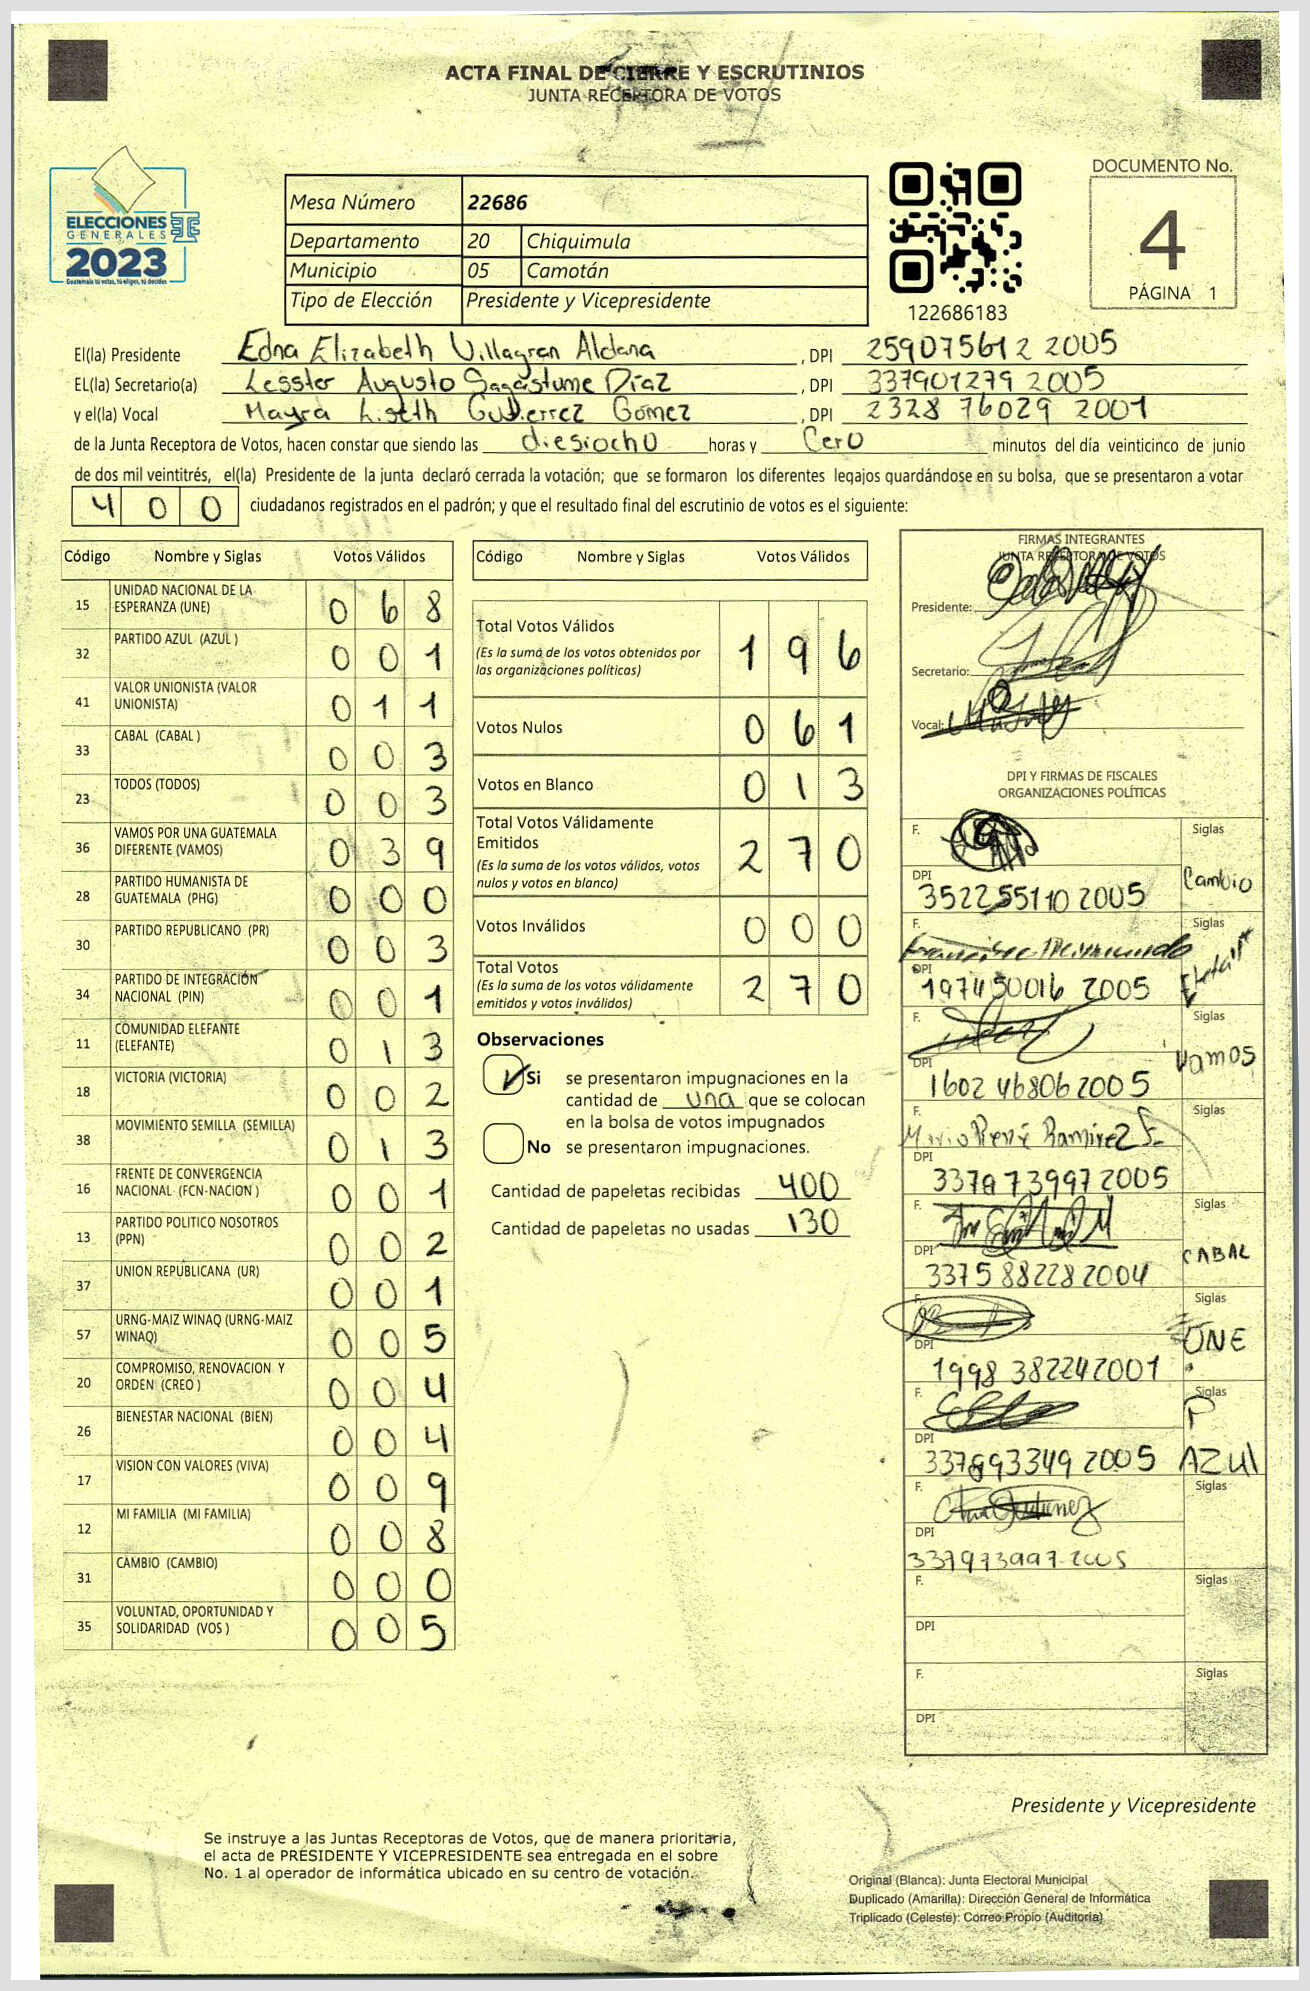 ACTA FINAL DE CIERRE Y ESCRUTINIOS
JUNTA RECEPTORA DE VOTOS
ELECCIONES
GENERALES
2023
Guatemala tú votas, tú eliges, tú decides
Mesa Número 22686
Departamento 20 Chiquimula
Municipio 05 Camotán
Tipo de Elección Presidente y Vicepresidente
122686183
DOCUMENTO No.
4
PÁGINA 1
El(la) Presidente Edna Elizabeth Villagran Aldana , DPI 259075612 2005
EL(la) Secretario(a) Lesster Augusto Sagastume Díaz , DPI 337901279 2005
y el(la) Vocal Mayra Liseth Gutierrez Gomez , DPI 2328 76029 2001
de la Junta Receptora de Votos, hacen constar que siendo las diesiocho horas y Cero minutos del día veinticinco de junio
de dos mil veintitrés, el(la) Presidente de la junta declaró cerrada la votación; que se formaron los diferentes legajos guardándose en su bolsa, que se presentaron a votar
400 ciudadanos registrados en el padrón; y que el resultado final del escrutinio de votos es el siguiente:
Código Nombre y Siglas Votos Válidos
15 UNIDAD NACIONAL DE LA
ESPERANZA (UNE) 068
32 PARTIDO AZUL (AZUL ) 001
41 VALOR UNIONISTA (VALOR
UNIONISTA) 011
33 CABAL (CABAL ) 003
23 TODOS (TODOS) 003
36 VAMOS POR UNA GUATEMALA
DIFERENTE (VAMOS) 039
28 PARTIDO HUMANISTA DE
GUATEMALA (PHG) 000
30 PARTIDO REPUBLICANO (PR) 003
34 PARTIDO DE INTEGRACIÓN
NACIONAL (PIN) 001
11 COMUNIDAD ELEFANTE
(ELEFANTE) 013
18 VICTORIA (VICTORIA) 002
38 MOVIMIENTO SEMILLA (SEMILLA) 013
16 FRENTE DE CONVERGENCIA
NACIONAL (FCN-NACION ) 001
13 PARTIDO POLITICO NOSOTROS
(PPN) 002
37 UNION REPUBLICANA (UR) 001
57 URNG-MAIZ WINAQ (URNG-MAIZ
WINAQ) 005
20 COMPROMISO, RENOVACION Y
ORDEN (CREO ) 004
26 BIENESTAR NACIONAL (BIEN) 004
17 VISION CON VALORES (VIVA) 009
12 MI FAMILIA (MI FAMILIA) 008
31 CAMBIO (CAMBIO) 000
35 VOLUNTAD, OPORTUNIDAD Y
SOLIDARIDAD (VOS ) 005
Código Nombre y Siglas Votos Válidos
Total Votos Válidos 196
(Es la suma de los votos obtenidos por
las organizaciones políticas)
Votos Nulos 061
Votos en Blanco 013
Total Votos Válidamente
Emitidos 270
(Es la suma de los votos válidos, votos
nulos y votos en blanco)
Votos Inválidos 000
Total Votos 270
(Es la suma de los votos válidamente
emitidos y votos inválidos)
Observaciones
Si se presentaron impugnaciones en la
cantidad de una que se colocan
en la bolsa de votos impugnados
No se presentaron impugnaciones.
Cantidad de papeletas recibidas 400
Cantidad de papeletas no usadas 130
FIRMAS INTEGRANTES
JUNTA RECEPTORA DE VOTOS
Presidente:
Secretario:
Vocal:
DPI Y FIRMAS DE FISCALES
ORGANIZACIONES POLÍTICAS
F. Siglas
DPI Cambio
352255110 2005
F. Siglas
DPI
197450016 2005
F. Siglas
DPI Vamos
1602 46806 2005
F. Mario René Ramirez Siglas
DPI
337973997 2005
F. Siglas
DPI CABAL
3375 88228 2004
F. Siglas
DPI UNE
1998 38224 2001
F. Siglas
P
DPI
337893349 2005 AZUL
F. Siglas
DPI
337973997-2005
F. Siglas
DPI
F. Siglas
DPI
Presidente y Vicepresidente
Se instruye a las Juntas Receptoras de Votos, que de manera prioritaria,
el acta de PRESIDENTE Y VICEPRESIDENTE sea entregada en el sobre
No. 1 al operador de informática ubicado en su centro de votación.
Original (Blanca): Junta Electoral Municipal
Duplicado (Amarilla): Dirección General de Informática
Triplicado (Celeste): Correo Propio (Auditoría)